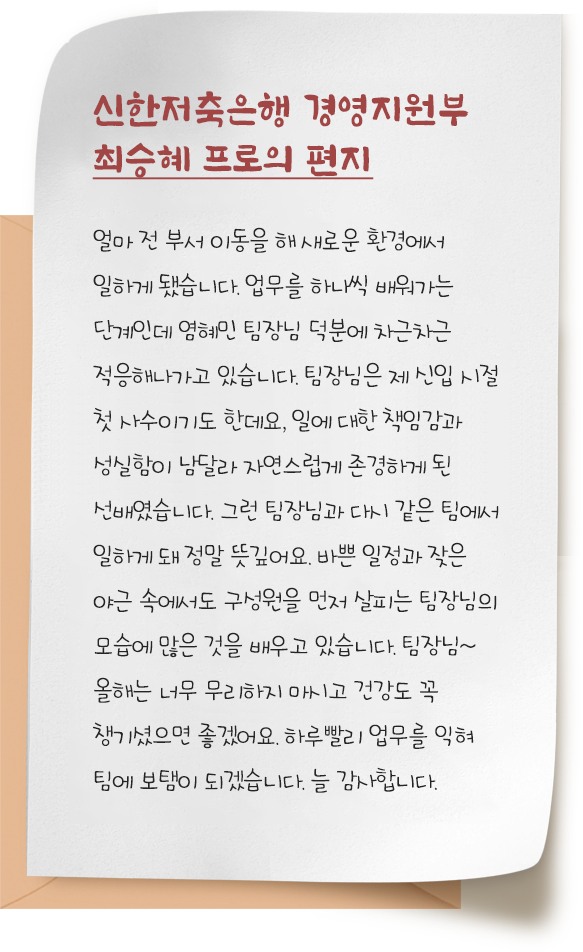 신한저축은행 경영지원부
최승혜 프로의 편지
얼마 전 부서 이동을 해 새로운 환경에서
일하게 됐습니다. 업무를 하나씩 배워가는
단계인데 염혜민 팀장님 덕분에 차근차근
적응해나가고 있습니다. 팀장님은 제 신입 시절
첫 사수이기도 한데요, 일에 대한 책임감과
성실함이 남달라 자연스럽게 존경하게 된
선배였습니다. 그런 팀장님과 다시 같은 팀에서
일하게 돼 정말 뜻깊어요. 바쁜 일정과 잦은
야근 속에서도 구성원을 먼저 살피는 팀장님의
모습에 많은 것을 배우고 있습니다. 팀장님~
올해는 너무 무리하지 마시고 건강도 꼭
챙기셨으면 좋겠어요. 하루빨리 업무를 익혀
팀에 보탬이 되겠습니다. 늘 감사합니다.